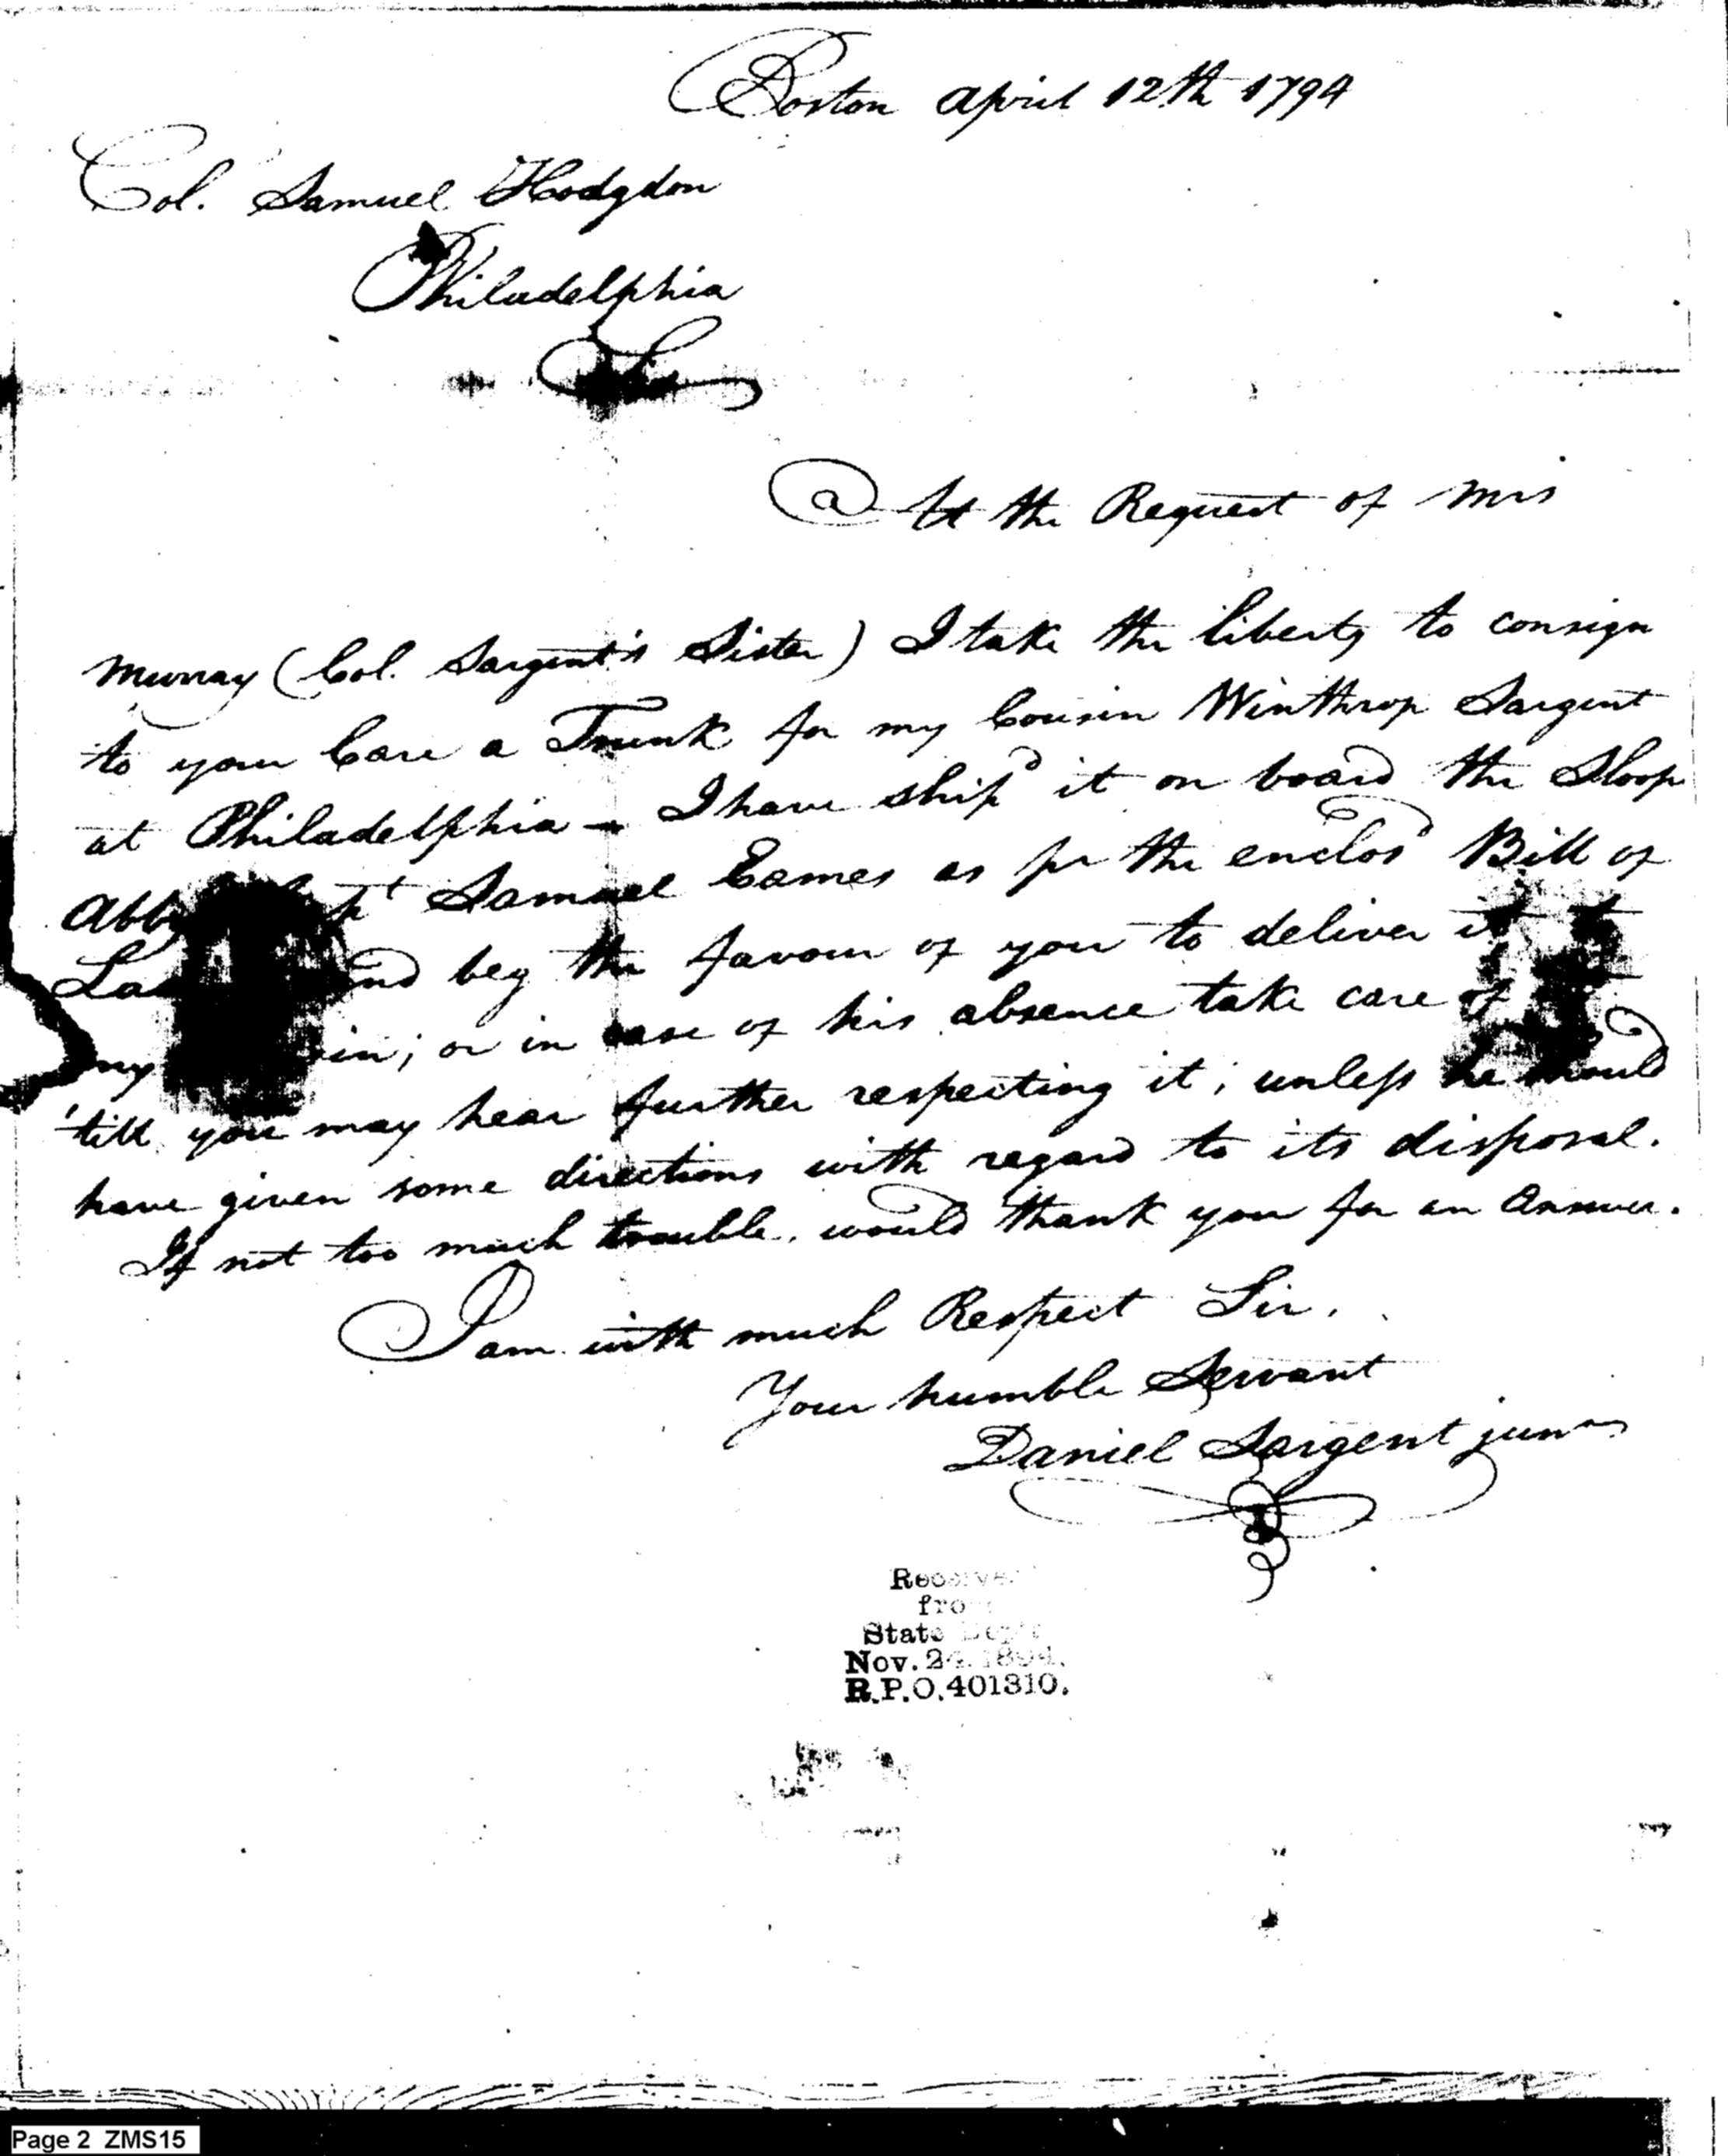 Boston April 12th 1794
Col. Samuel Hodgdon
Philadelphia
Sir
At the Request of Mrs
Murray (Col. Sargent's Sister) I take the liberty to consign
to your Care a Trunk for my Cousin Winthrop Sargent
at Philadelphia - I have ship'd it on board the Sloop
Samuel Eames as pr the enclos'd Bill of
and beg the favour of you to deliver it to
my in; or in case of his absence take care of
'till you may hear further respecting it; unless he should
have given some directions with regard to its disposal.
If not too much trouble, would thank you for an Answer.
I am with much Respect Sir,
Your humble Servant
Daniel Sargent junr
Receive
from
State Dept
Nov. 24. 1894.
R.P.O. 401310.
Page 2 ZMS15